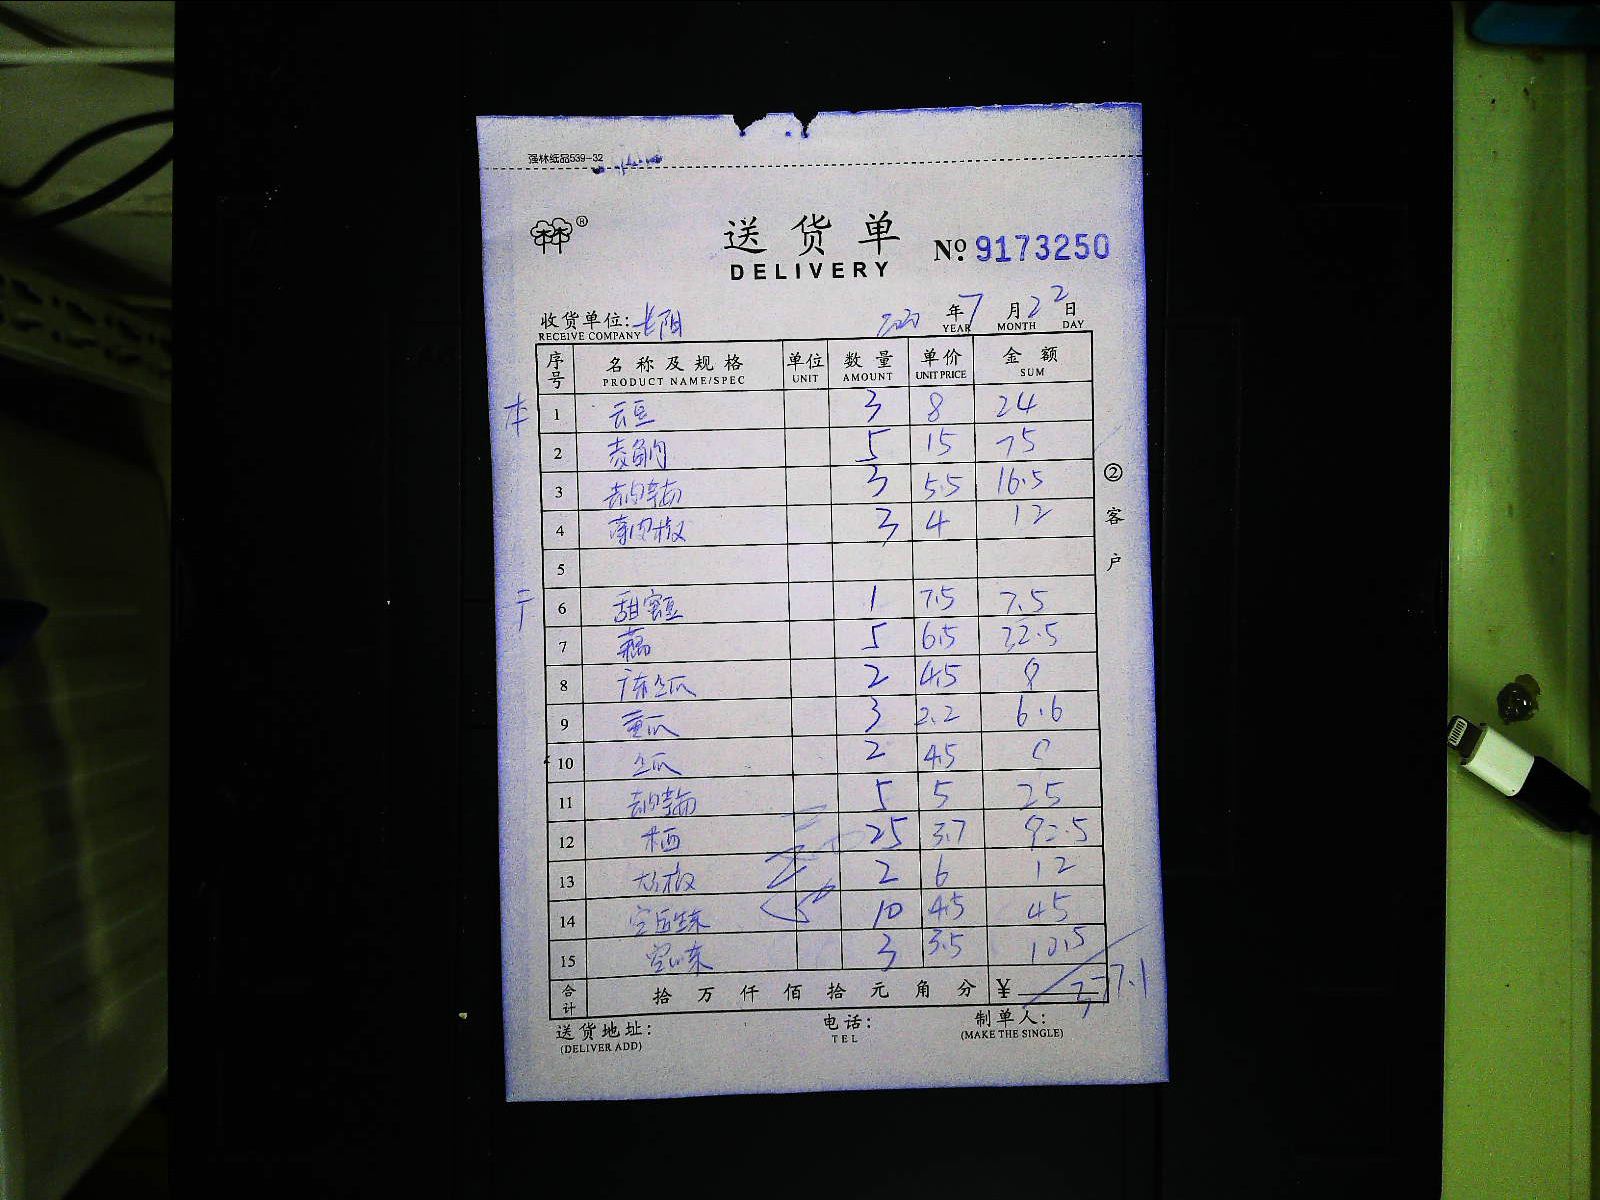 强林纸品539-32
®
送货单
DELIVERY
№ 9173250
收货单位: 长阳 年 7 月 22 日
RECEIVE COMPANY YEAR MONTH DAY
序号 名称及规格 单位 数量 单价 金额
PRODUCT NAME/SPEC UNIT AMOUNT UNIT PRICE SUM
本 1 云豆 3 8 24
2 5 15 75
3 3 5.5 16.5
4 3 4 12
5
二 6 甜蜜豆 1 7.5 7.5
7 藕 5 6.5 32.5
8 2 4.5 9
9 3 2.2 6.6
10 2 4.5 9
11 5 5 25
12 25 3.7 92.5
13 2 6 12
14 10 4.5 45
15 3 3.5 10.5
合计 拾 万 仟 佰 拾 元 角 分 ¥ 377.1
送货地址: 电话: 制单人:
(DELIVER ADD) TEL (MAKE THE SINGLE)
② 客户